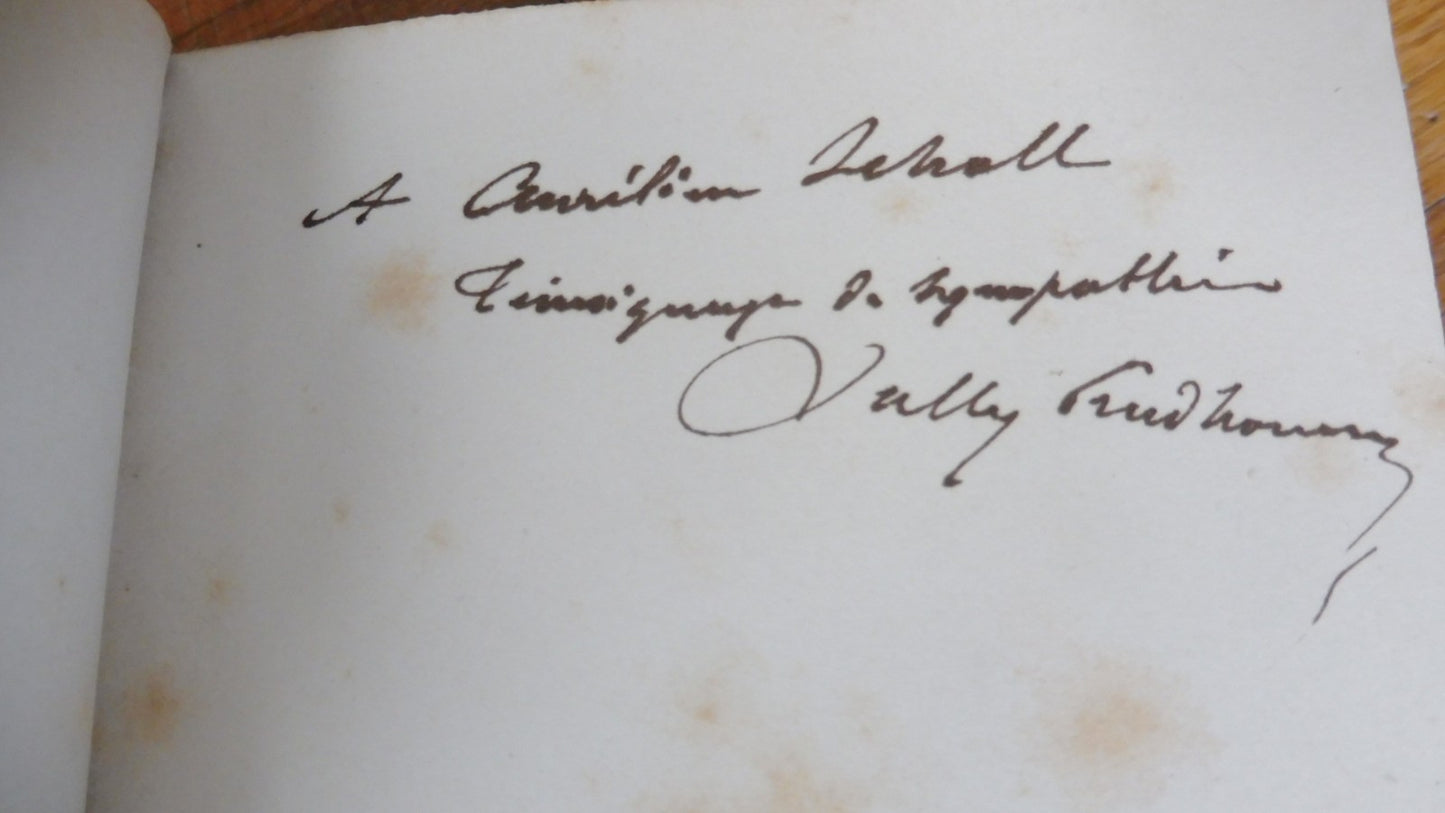 A Aurélien Scholl
Témoignage de sympathie
Sully Prudhomme